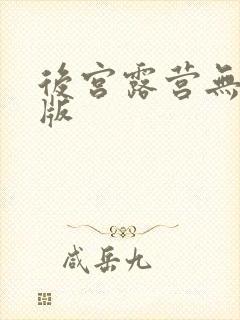 後宫露营無
版
咸岳九